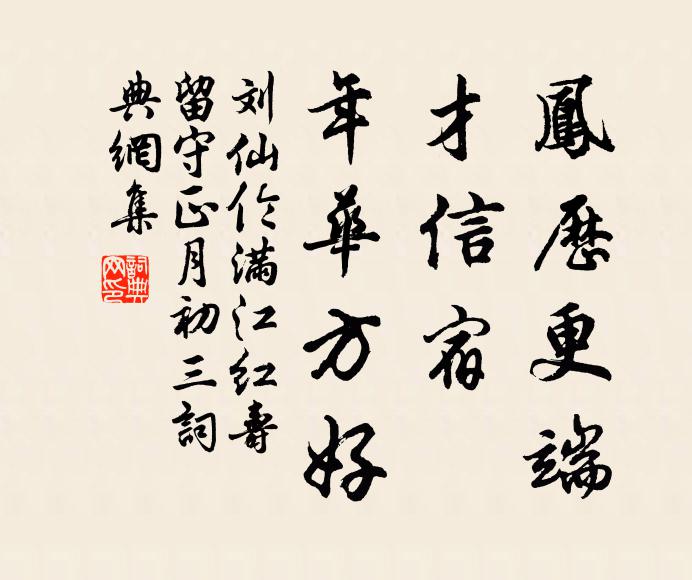 鳳歷更端
才信宿
年華方好
刘仙伦滿江紅壽
留守正月初三詞
典網集
詞典網印